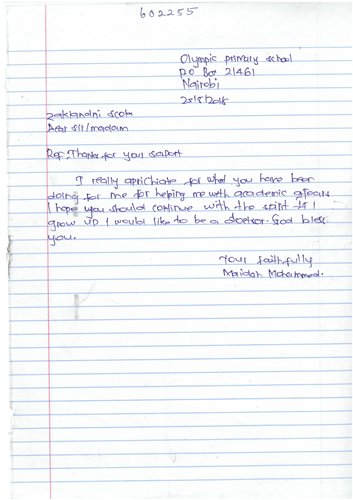 602255
Olympic primary school
P.O Box 21461
Nairobi
25/5/2018
zaklandni scom
Dear sir/madam
Ref: Thanks for your saport
I really aprichiate for what you have been
doing for me for helping me with academic
I hope you should continue with the spirit if I
grow up I would like to be a doctor. God bless
you.
Your faithfully
Maridah Mohammed.